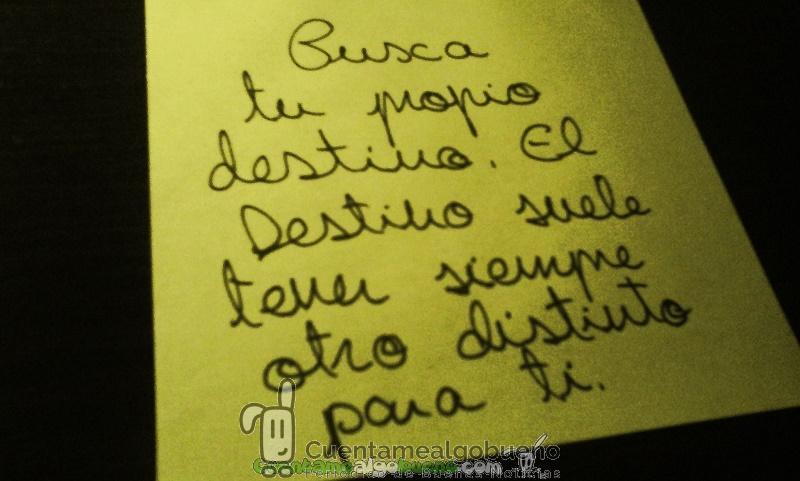 Busca
tu propio
destino. El
Destino suele
tener siempre
otro distinto
para ti.
Cuentamealgobueno
Cuentamealgobueno.com
Periódico de Buenas Noticias